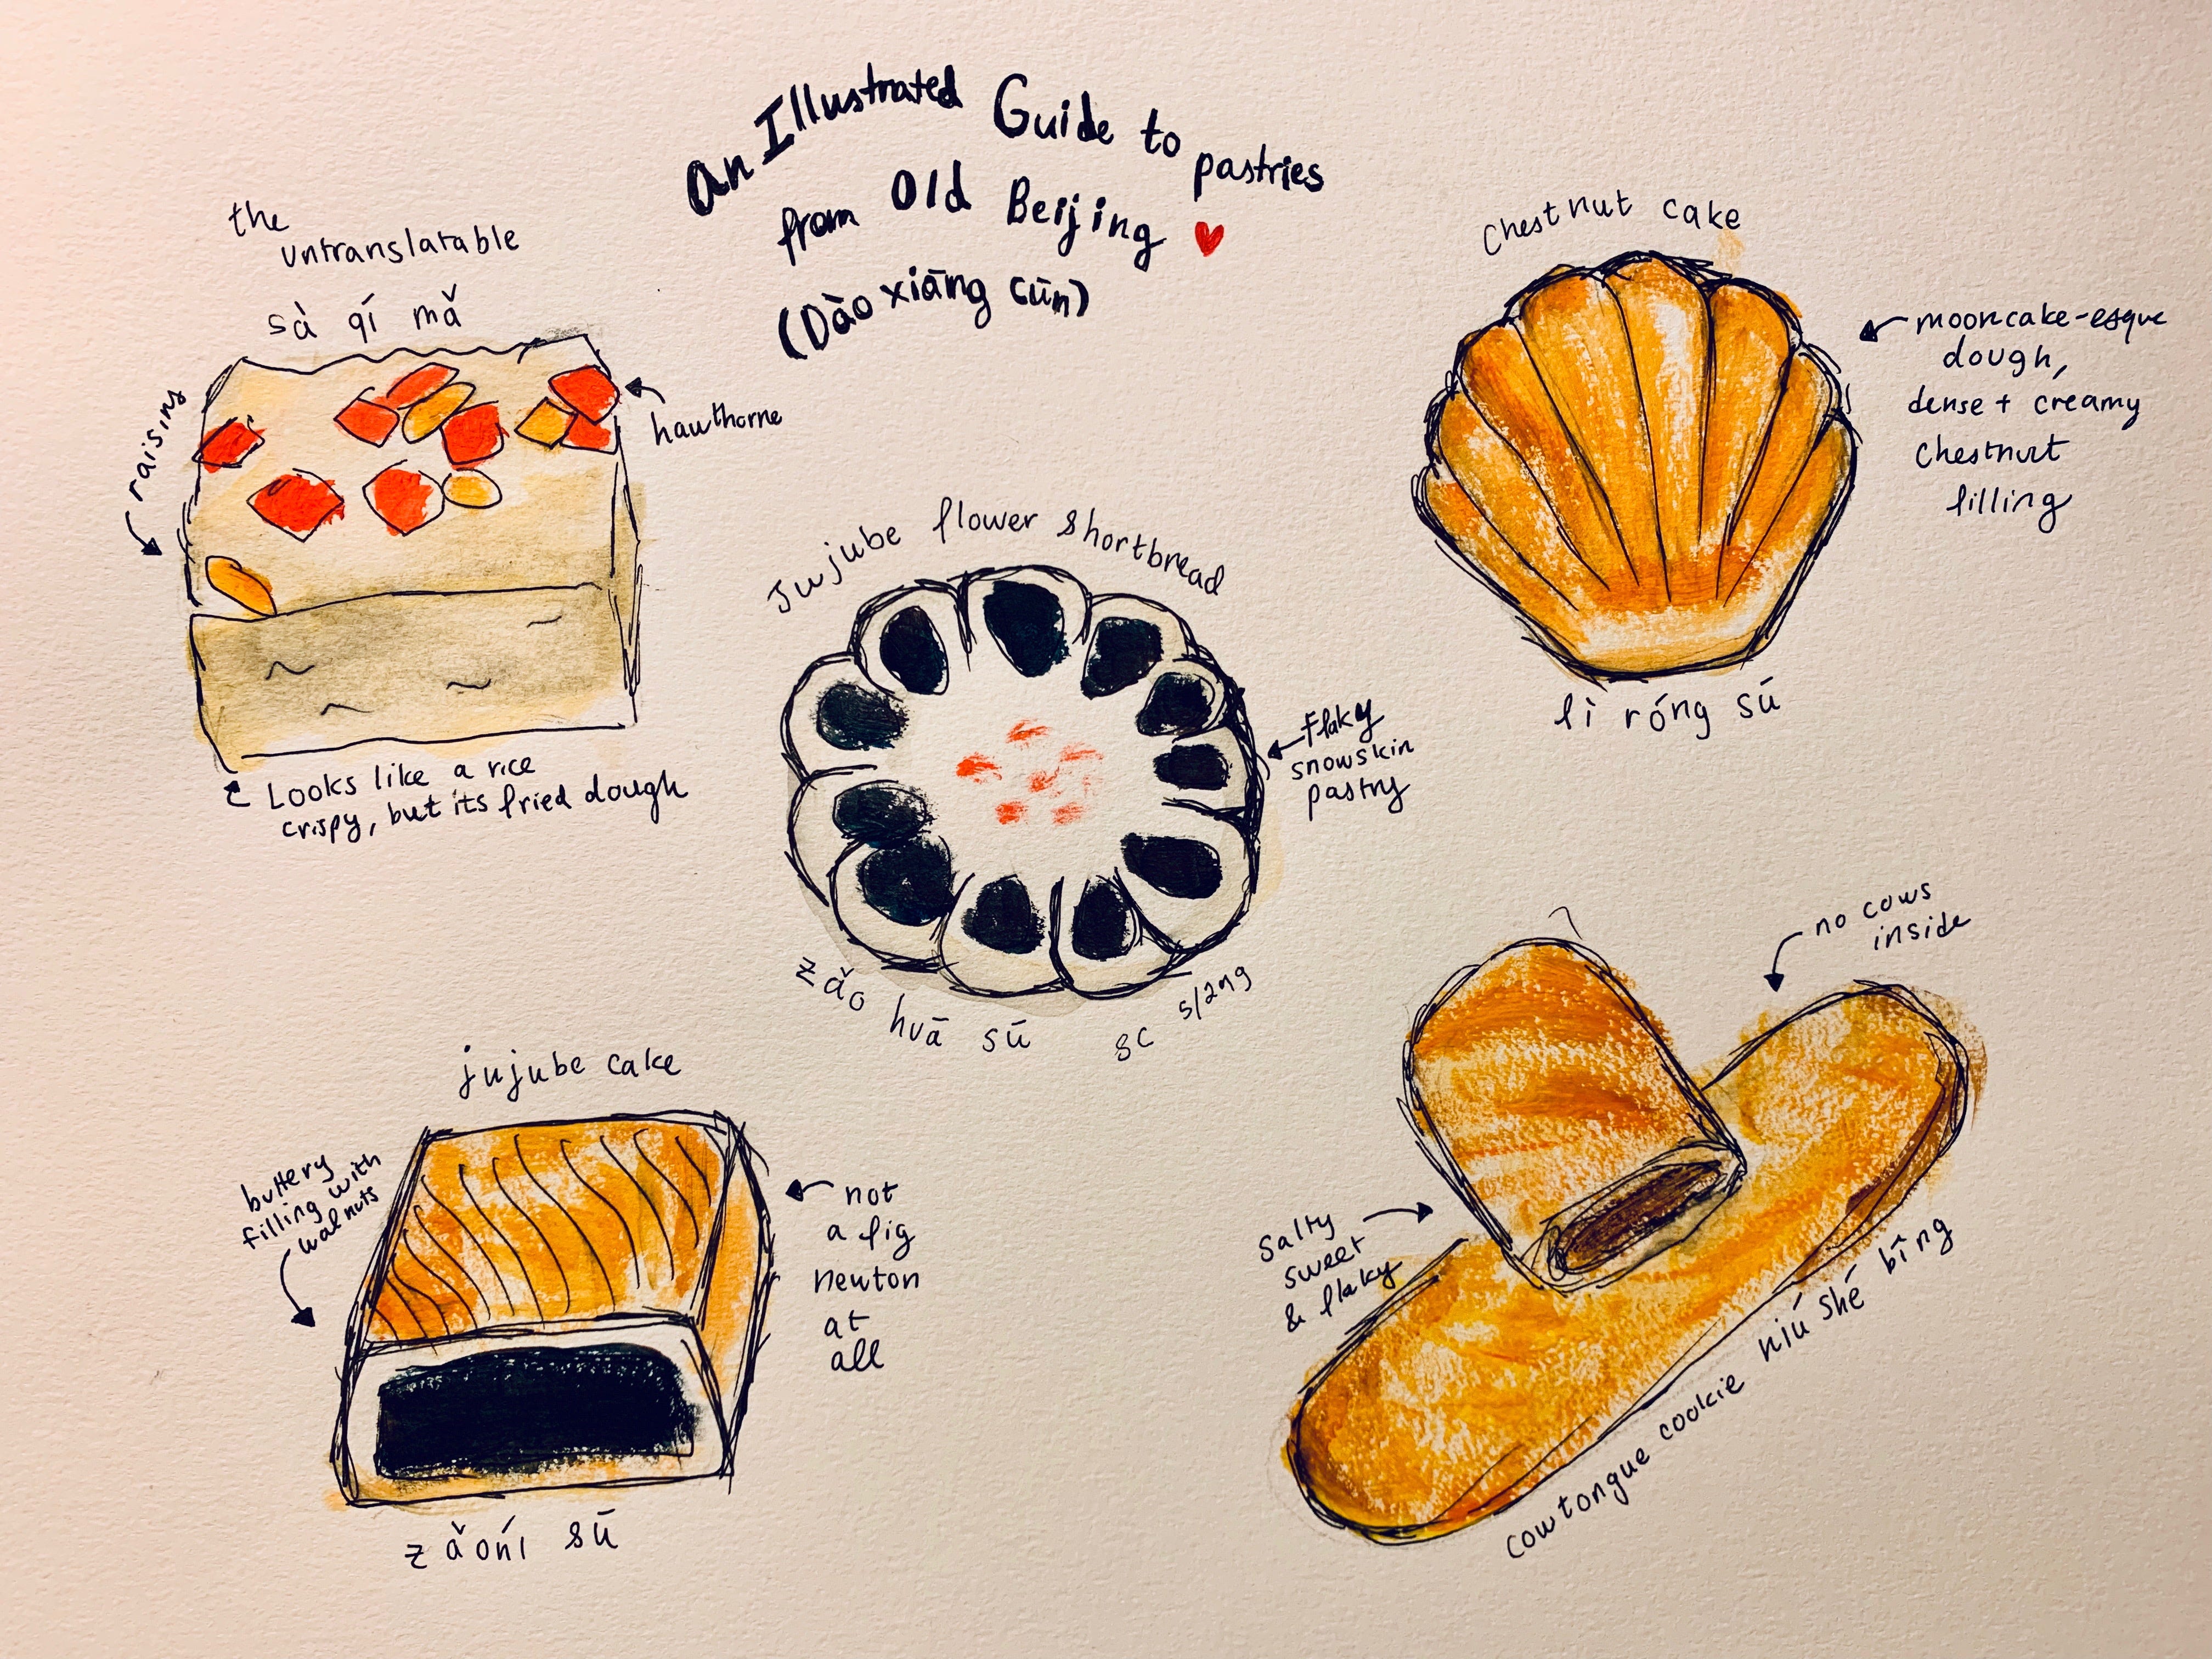 An Illustrated Guide to pastries
from Old Beijing
(Dào xiāng cūn)
the
untranslatable
sà qí mǎ
raisins
hawthorne
Looks like a rice
crispy, but its fried dough
Chestnut cake
mooncake-esque
dough,
dense + creamy
Chestnut
filling
lì róng sū
Jujube flower shortbread
Flaky
snowskin
pastry
zǎo huā sū
sc slzng
jujube cake
buttery
filling with
walnuts
not
a fig
newton
at
all
zǎoní sū
no cows
inside
Salty
sweet
& flaky
cow tongue cookie niú shé bǐng